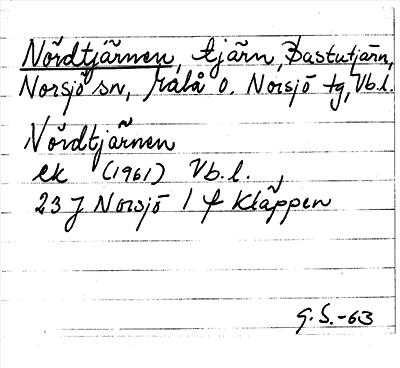 Nördtjärnen, tjärn, Bastutjärn,
Norsjö sn, Malå o. Norsjö tg, Vb.l.
Nördtjärnen
ek (1961) Vb.l.,
23 J Norsjö 1 f Kläppen
G.S.-63